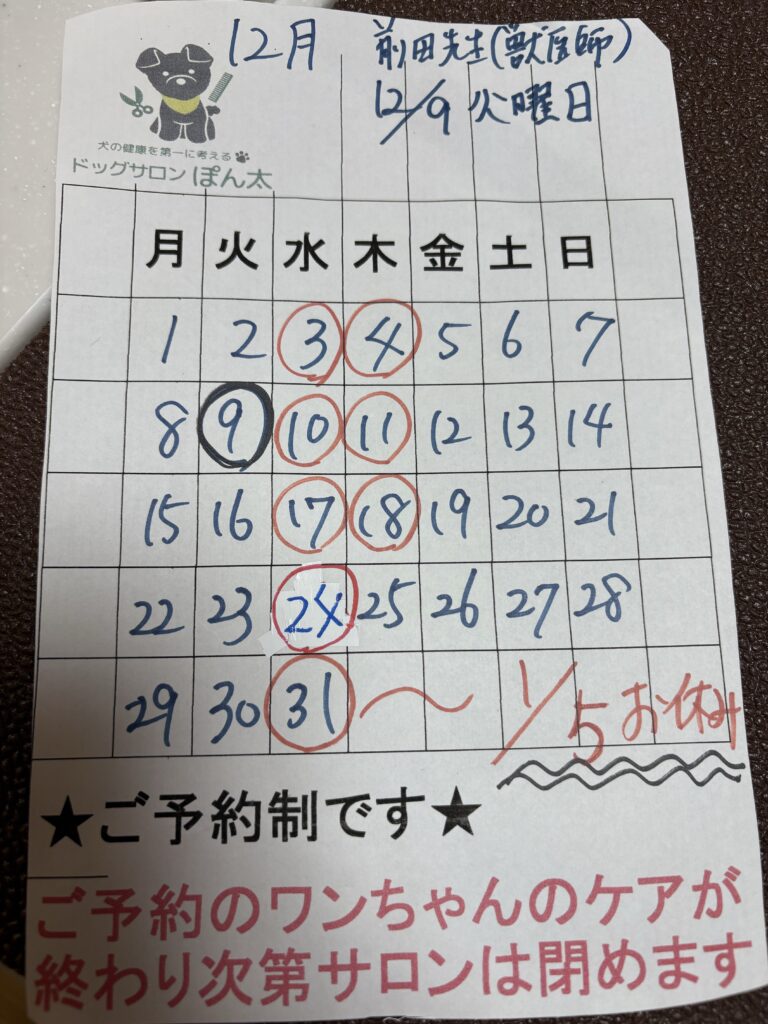 12月 前田先生(獣医師)
12/9 火曜日
犬の健康を第一に考える
ドッグサロン ぽん太
月 火 水 木 金 土 日
1 2 3 4 5 6 7
8 9 10 11 12 13 14
15 16 17 18 19 20 21
22 23 24 25 26 27 28
29 30 31 〜 1/5 お休み
★ご予約制です★
ご予約のワンちゃんのケアが
終わり次第サロンは閉めます